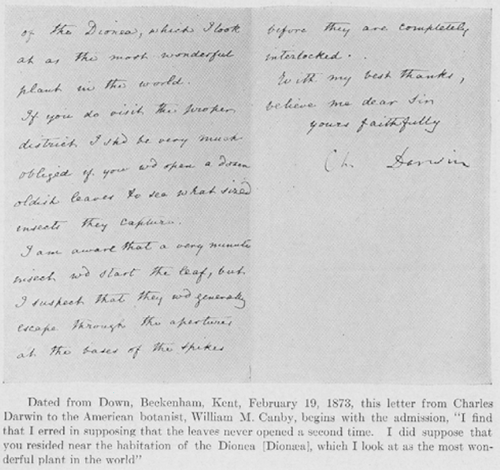 of the Dionea, which I look
at as the most wonderful
plant in the world.
If you do visit the proper
district I shd be very much
obliged if you wd open a dozen
oldish leaves to see what sized
insects they capture.
I am aware that a very minute
insect wd start the leaf, but
I suspect that they wd generally
escape through the apertures
at the bases of the spikes
before they are completely
interlocked.
With my best thanks,
believe me dear Sir
yours faithfully
Ch. Darwin
Dated from Down, Beckenham, Kent, February 19, 1873, this letter from Charles
Darwin to the American botanist, William M. Canby, begins with the admission, "I find
that I erred in supposing that the leaves never opened a second time. I did suppose that
you resided near the habitation of the Dionea [Dionæa], which I look at as the most won-
derful plant in the world"